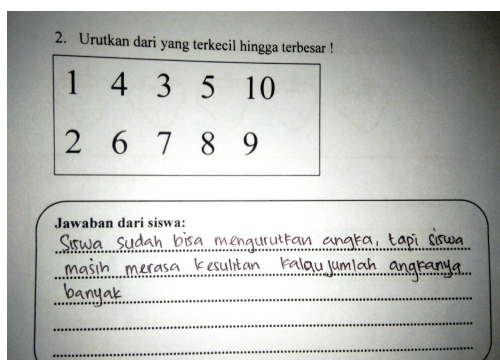 2. Urutkan dari yang terkecil hingga terbesar !
1 4 3 5 10
2 6 7 8 9
Jawaban dari siswa:
Siswa sudah bisa mengurutkan angka, tapi siswa
masih merasa kesulitan kalau jumlah angkanya
banyak